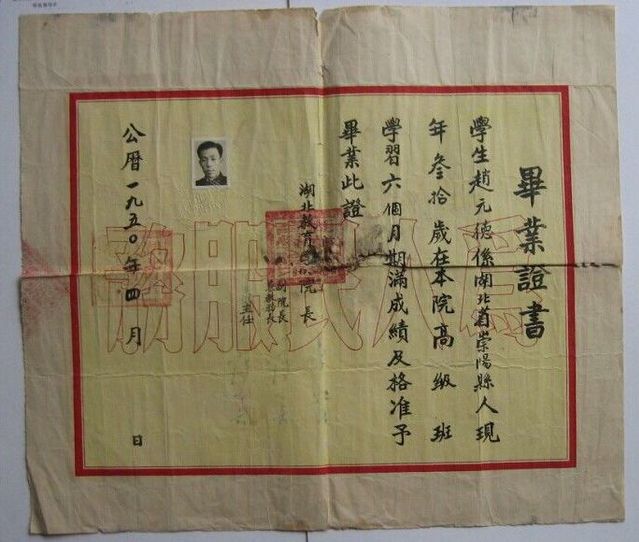 畢業證書
學生趙元德係湖北省崇陽縣人現
年叁拾歲在本院高級班
學習六個月期滿成績及格准予
畢業此證
湖北教育院長
副院長
教務長
主任
公曆一九五〇年四月 日
為人民服務